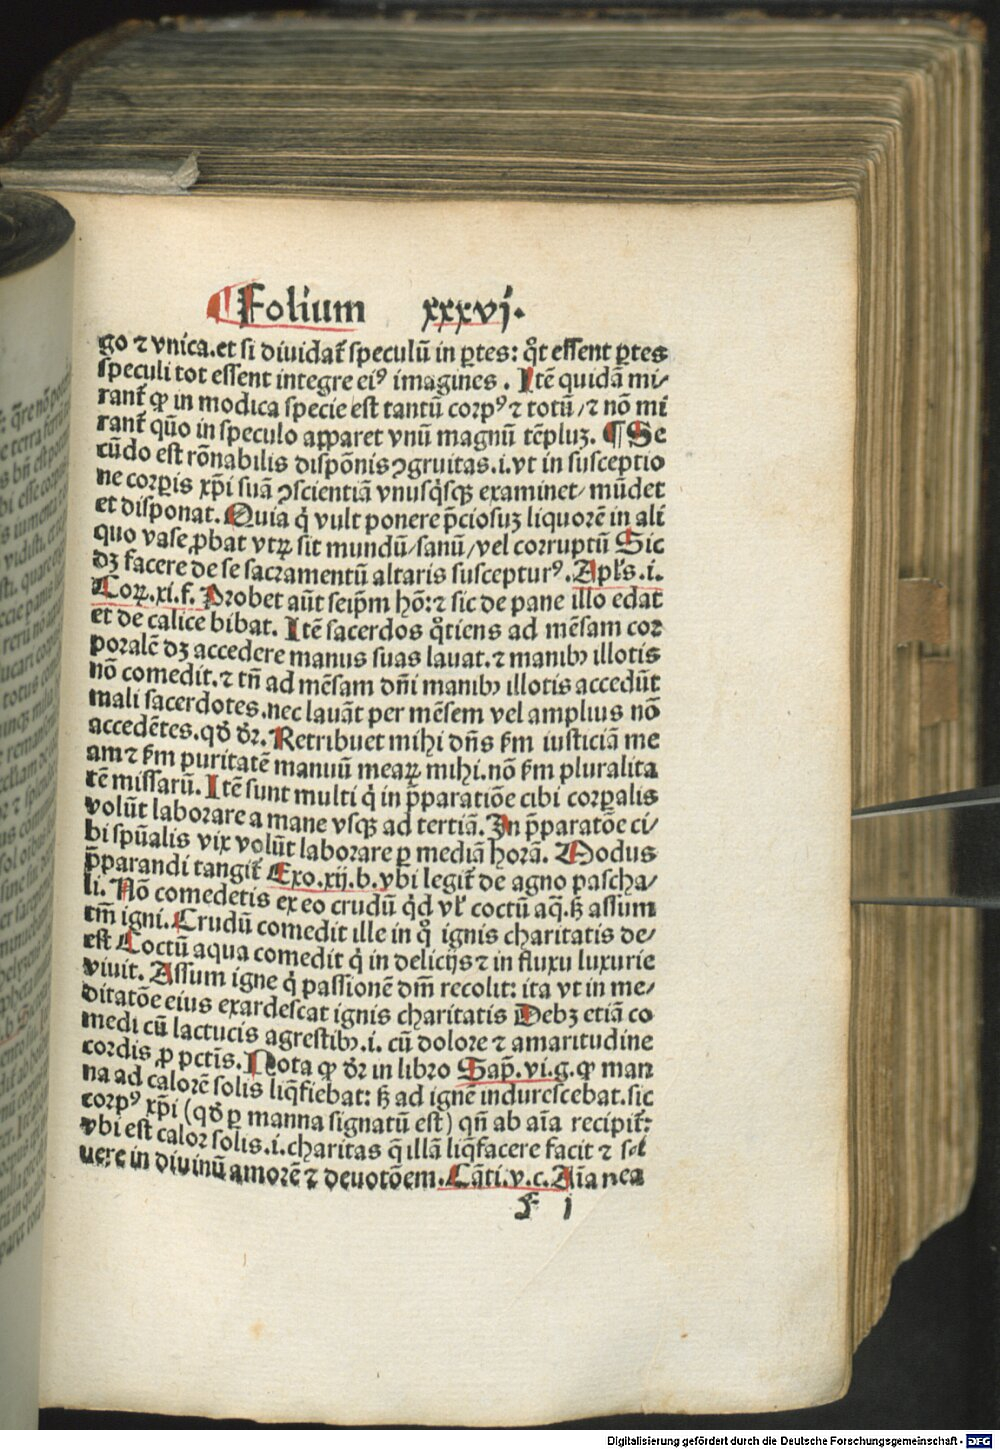 Folium xxxvj.
go ⁊ vnica.et si diuidat᷑ speculū in ꝑtes: qͦt essent ꝑtes
speculi tot essent integre eiꝰ imagines. Itē quidā mi/
rant᷑ ꝙ in modica specie est tantū corpꝰ ⁊ totū/⁊ nō mi
rant᷑ quō in speculo apparet vnū magnū tēpluꝫ. ¶ Se
cūdo est rōnabilis dispōnis ꝯgruitas.i.vt in susceptio
ne corꝑis xp̄i suā ꝯscientiā vnusqͥsqꝫ examinet/mūdet
et disponat. Quia qͥ vult ponere p̄ciosuꝫ liquorē in ali
quo vase ꝓbat vtꝝ sit mundū/sanū/vel corruptū Sic
dꝫ facere de se sacramentū altaris suscepturꝰ. Apl̄s.i.
Coꝝ.xi.f. Probet aūt seip̄m hō:⁊ sic de pane illo edat
et de calice bibat. Itē sacerdos qͦtiens ad mēsam cor
poralē dꝫ accedere manus suas lauat.⁊ manibꝫ illotis
nō comedit.⁊ tn̄ ad mēsam dn̄i manibꝫ illotis accedūt
mali sacerdotes.nec lauāt per mēsem vel amplius nō
accedētes.qđ dr̄. Retribuet mihi dn̄s ẜm iusticiā me
am ⁊ ẜm puritatē manuū meaꝝ mihi.nō ẜm pluralita
tē missarū. Itē sunt multi qͥ in p̄paratiōe cibi corꝑalis
volūt laborare a mane vsqꝫ ad tertiā. In p̄paratōe ci/
bi spūalis vix volūt laborare ꝑ mediā horā. Modus
p̄parandi tangit᷑ Exo.xij.b.vbi legit᷑ de agno pascha/
li. Nō comedetis ex eo crudū qͥd vl̄ coctū aq̄.ꝫ assum
tm̄ igni. Crudū comedit ille in qͦ ignis charitatis de/
est Coctū aqua comedit qͥ in delicijs ⁊ in fluxu luxurie
viuit. Assum igne qͥ passionē dm̄ recolit: ita vt in me/
ditatōe eius exardescat ignis charitatis Debꝫ etiā co
medi cū lactucis agrestibꝫ.i. cū dolore ⁊ amaritudine
cordis ꝓ pctīs. Nota ꝙ dr̄ in libro Sap̄.vi.g.ꝙ man
na ad calorē solis liqͤfiebat: ꝫ ad ignē indurescebat.sic
corpꝰ xp̄i (qđ ꝑ manna signatū est) qn̄ ab aīa recipit᷑:
vbi est calor solis.i.charitas q̄ illā liqͤfacere facit ⁊ sol
uere in diuinū amorē ⁊ deuotōem. Cāti.v.c. Aīa mea
f j
Digitalisierung gefördert durch die Deutsche Forschungsgemeinschaft - DFG